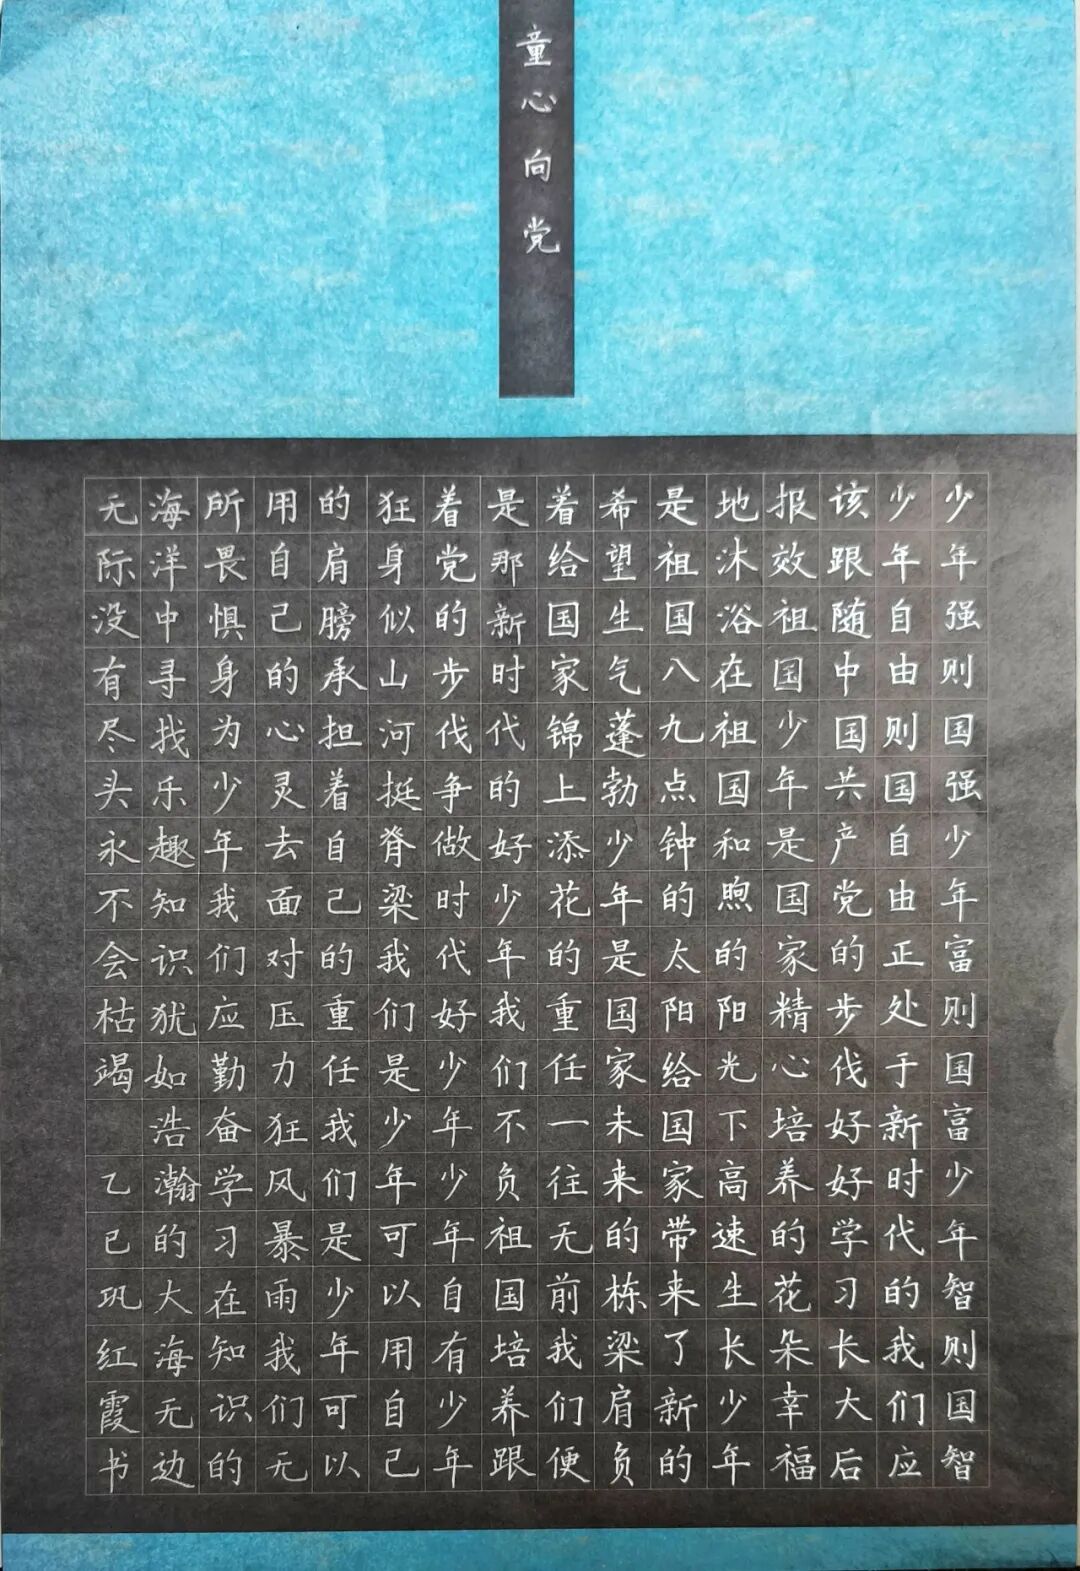 童心向党
少年强则国强少年富则国富少年智则国智
少年自由则国自由正处于新时代的我们应
该跟随中国共产党的步伐好好学习长大后
报效祖国少年是国家精心培养的花朵幸福
地沐浴在祖国和煦的阳光下高速生长少年
是祖国八九点钟的太阳给国家带来了新的
希望生气蓬勃少年是国家未来的栋梁肩负
着给国家锦上添花的重任一往无前我们便
是那新时代的好少年我们不负祖国培养跟
着党的步伐争做时代好少年少年自有少年
狂身似山河挺脊梁我们是少年可以用自己
的肩膀承担着自己的重任我们是少年可以
用自己的心灵去面对压力狂风暴雨我们无
所畏惧身为少年我们应勤奋学习在知识的
海洋中寻找乐趣知识犹如浩瀚的大海无边
无际没有尽头永不会枯竭 乙巳巩红霞书